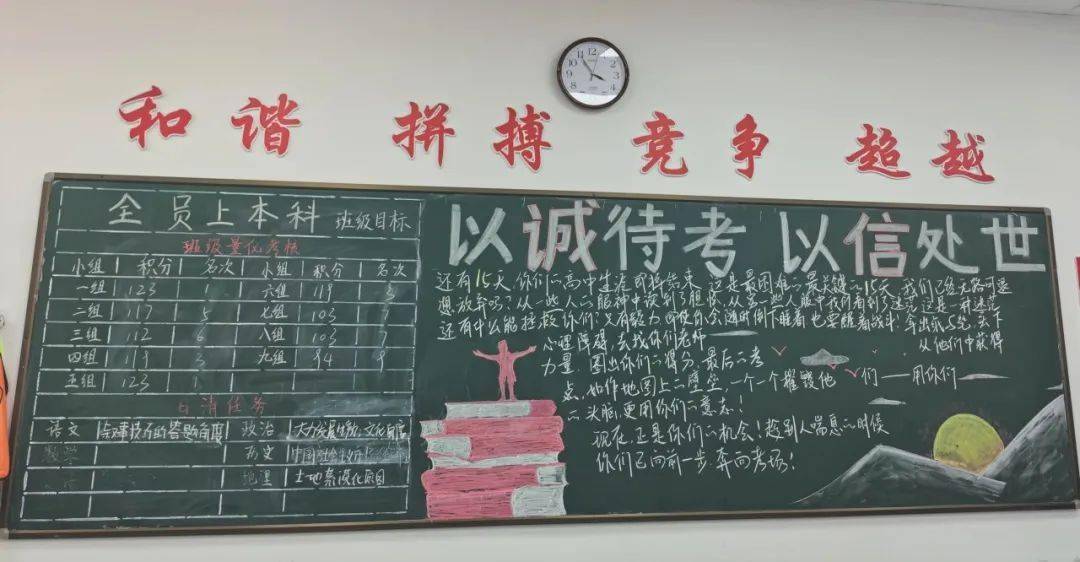 和谐 拼搏 竞争 超越
全员上本科 班级目标
班级量化考核
小组 积分 名次 小组 积分 名次
一组 123 1 六组 119 3
二组 117 5 七组 103 7
三组 112 6 八组 103 7
四组 119 3 九组 94 9
五组 123 1
日清任务
语文 答题角度 政治
历史
地理 土地
以诚待考 以信处世
还有15天,你们的高中生涯即将结束,这是最困难的最关键的15天,我们已经无路可退
想放弃吗?从一些人的眼神中读到了胆怯,从另一些人眼中我们看到了迷茫,这是一种迷茫
还有什么能拯救你们?只有努力,即使你会随时倒下,睡着也要醒着战斗,拿出试卷,放下
心理障碍,去找你们老师 从他们中获得
力量,圈出你们的得分,最后的考
点,如作地图上的壁垒,一个一个摧毁他们——用你们——
的头脑,更用你们的意志!
现在,正是你们的机会!趁别人喘息的时候
你们已向前一步,奔向考场!